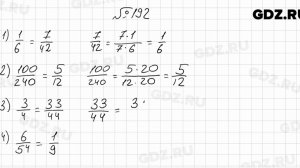 GDZ.RU
№192
1) 1/6 = 7/42 7/42 = 7·1/7·6 = 1/6
2) 100/240 = 5/12 100/240 = 5·20/12·20 = 5/12
3) 3/4 = 33/44 33/44 = 3·
4) 6/54 = 1/9
GDZ.RU